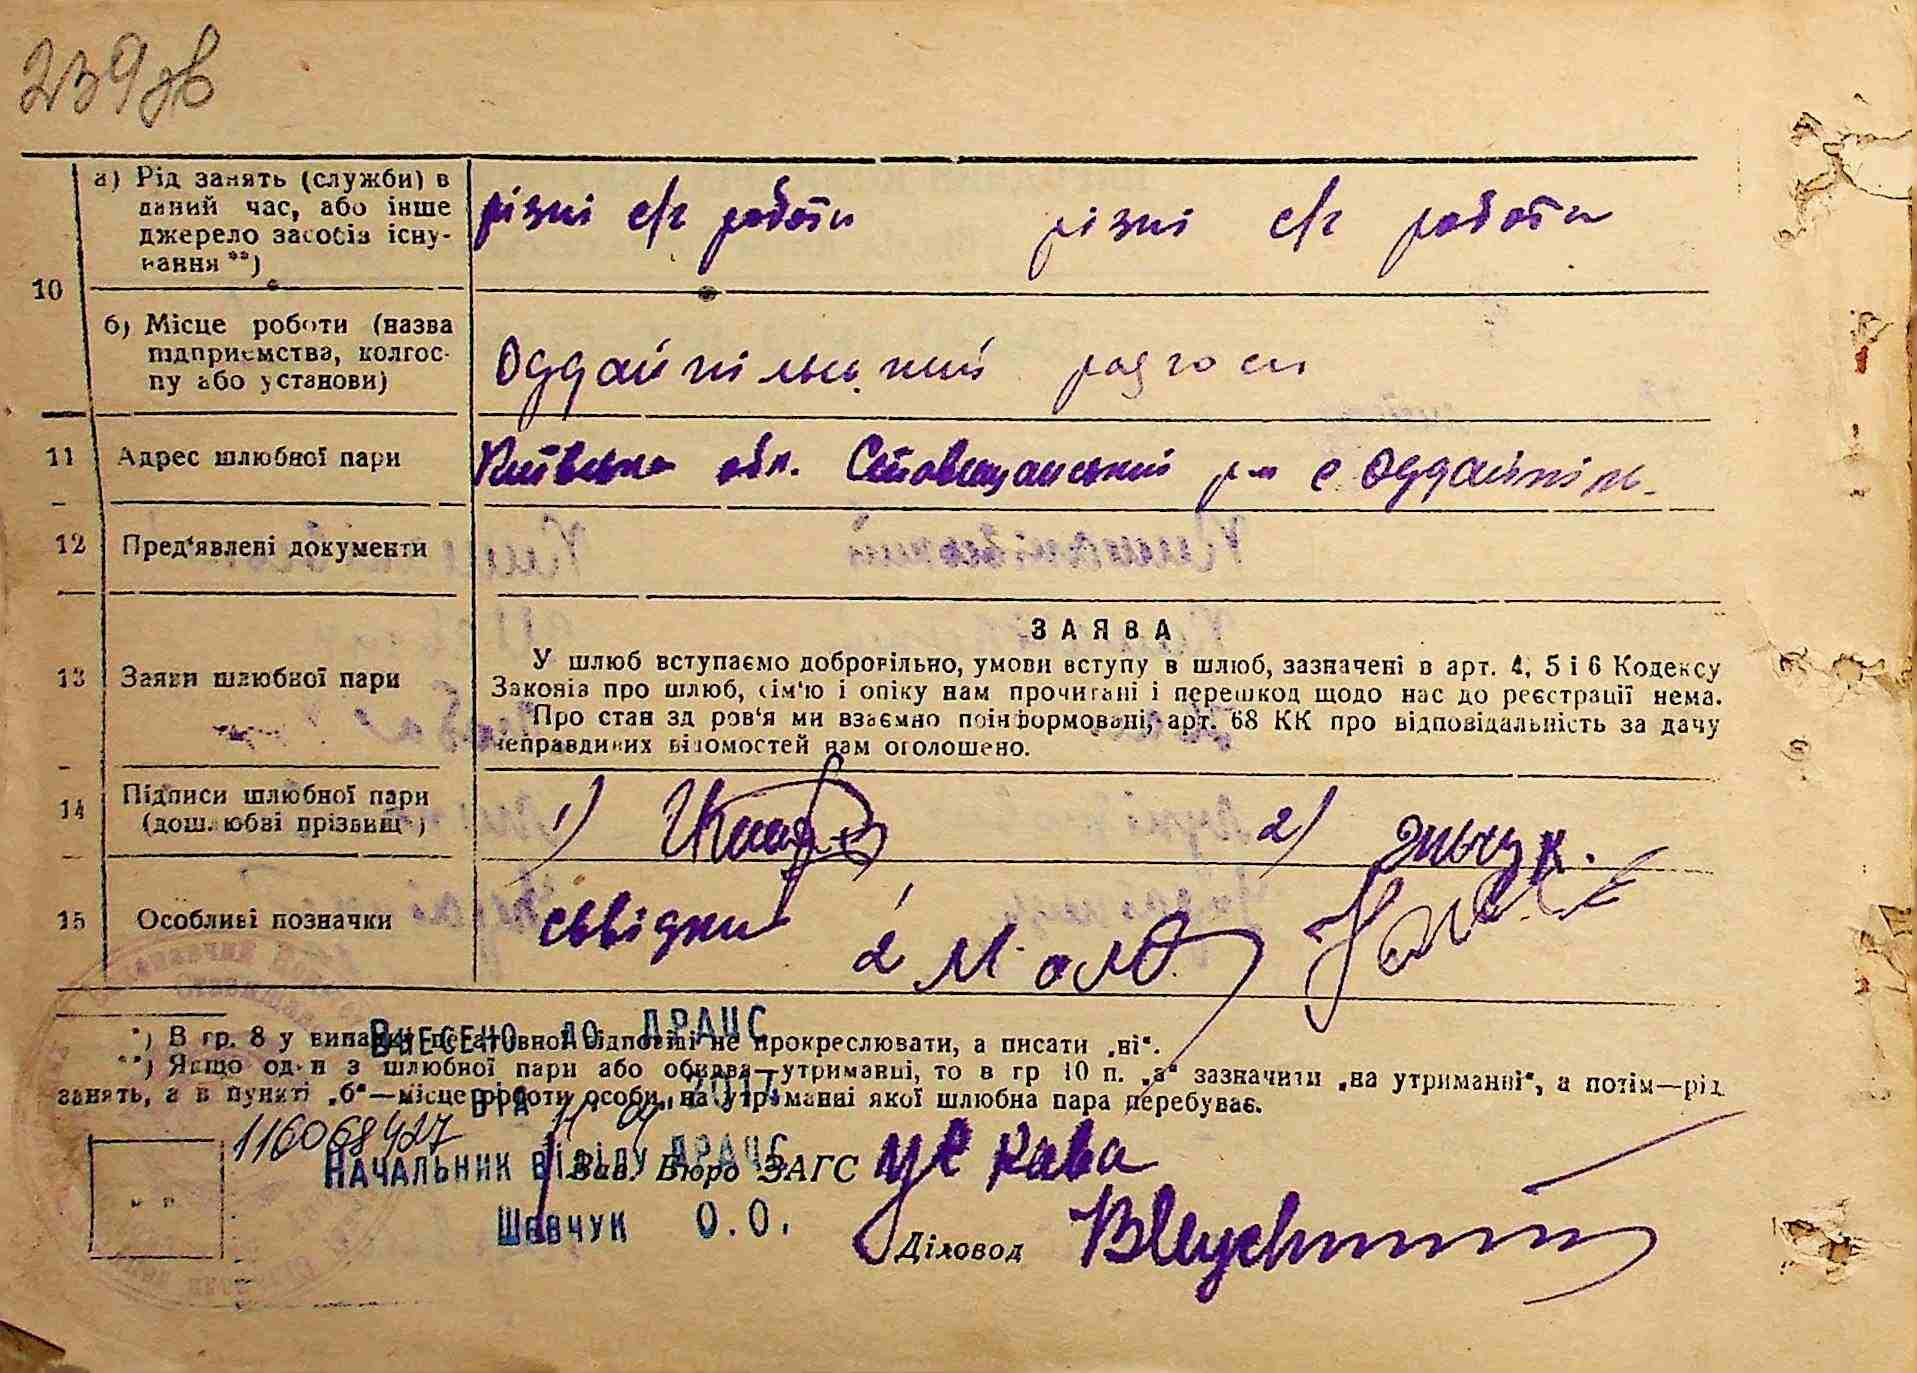 239 зв
10
а) Рід занять (служби) в
даний час, або інше
джерело засобів існу-
вання **)
різні с/г роботи різні с/г роботи
б) Місце роботи (назва
підприємства, колгос-
пу або установи)
Оддайпільський радгосп
11 Адрес шлюбної пари
Київська обл. Ставищанський р-н с Оддайпіль
12 Пред'явлені документи
13 Заяви шлюбної пари
ЗАЯВА
У шлюб вступаємо добровільно, умови вступу в шлюб, зазначені в арт. 4, 5 і 6 Кодексу
Законів про шлюб, сім'ю і опіку нам прочитані і перешкод щодо нас до реєстрації нема.
Про стан здоров'я ми взаємно поінформовані, арт. 68 КК про відповідальність за дачу
неправдивих відомостей нам оголошено.
14 Підписи шлюбної пари
(дошлюбні прізвища)
1) 2)
15 Особливі позначки
свідки 2
*) В гр. 8 у випадку негативної відповіді не прокреслювати, а писати „ні“.
**) Якщо один з шлюбної пари або обидва—утриманці, то в гр 10 п. „а“ зазначити „на утриманні“, а потім—рід
занять, а в пункті „б“—місце роботи особи, на утриманні якої шлюбна пара перебуває.
Внесено до ДРАЦС
від 2017
116068427
Начальник відділу ДРАЦС
Шевчук О.О.
Зав. Бюро ЗАГС
Діловод